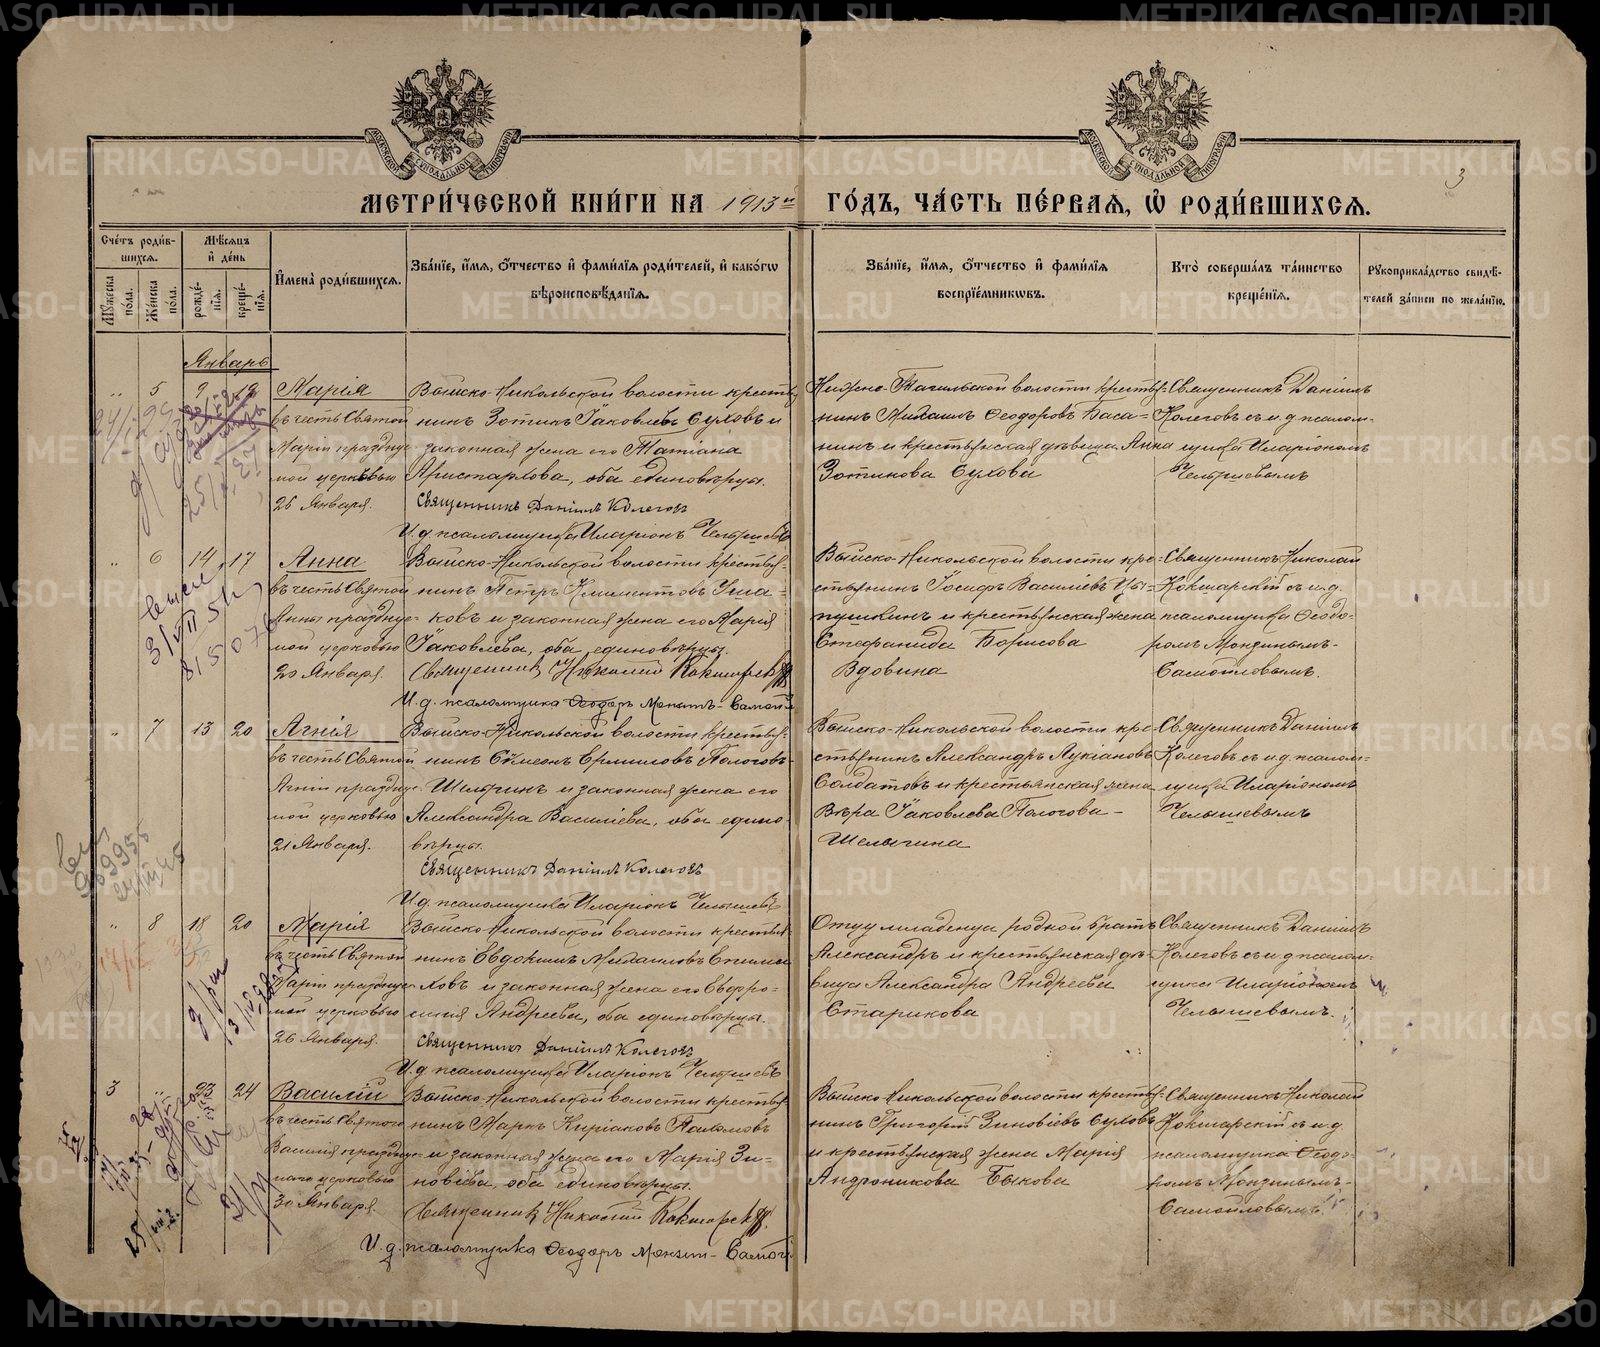 МЕТРИ́ЧЕСКОЙ КНИ́ГИ НА 1913й ГО́ДЪ, ЧА́СТЬ ПЕ́РВАЯ, Ѿ РОДИ́ВШИХСЯ.
3
Сче́тъ роди́в-
шихся.
Мѣ́сяцъ
и҆ де́нь
Му́жеска
по́ла.
Же́нска
по́ла.
рожде́-
нїя.
креще́-
нїя.
И҆мена̀ роди́вшихся.
Зва́нїе, и҆́мя, ѻ҆́тчество и҆ фами́лїя роди́телей, и҆ како́гѡ
вѣроисповѣ́данїя.
Зва́нїе, и҆́мя, ѻ҆́тчество и҆ фами́лїя
воспрїе́мникѡвъ.
Кто̀ соверша́лъ та́инство
креще́нїя.
Рукоприкла́дство свидѣ́-
телей за́писи по жела́нїю.
Январь
" 5 9 12 Марія
въ честь Святой
Маріи празднуе-
мой церковью
26 Января.
Выйско-Никольской волости крестья-
нинъ Зотикъ Іаковлевъ Суховъ и
законная жена его Татіана
Аристархова, оба единовѣрцы.
Священникъ Даніилъ Колеговъ
И. д. псаломщика Иларіонъ Челышевъ
Нижне-Тагильской волости крестья-
нинъ Михаилъ Ѳеодоровъ Баса-
нинъ и крестьянская дѣвица Анна
Зотикова Сухова
Священникъ Даніилъ
Колеговъ съ и. д. псалом-
щика Иларіономъ
Челышевымъ
" 6 14 17 Анна
въ честь Святой
Анны празднуе-
мой церковью
20 Января.
Выйско-Никольской волости крестья-
нинъ Петръ Климентовъ Уша-
ковъ и законная жена его Марія
Іаковлева, оба единовѣрцы.
Священникъ Николай Кокшарскій
И. д. псаломщика Ѳеодоръ
Выйско-Никольской волости кре-
стьянинъ Іосифъ Василіевъ Цы-
пушкинъ и крестьянская жена
Стефанида Борисова
Вдовина
Священникъ Николай
Кокшарскій съ и. д.
псаломщика Ѳеодо-
ромъ Монзинымъ-
Самойловымъ.
" 7 13 20 Агнія
въ честь Святой
Агніи празднуе-
мой церковью
21 Января.
Выйско-Никольской волости крестья-
нинъ Сѵмеонъ Ермиловъ Пологовъ-
Шелыгинъ и законная жена его
Александра Василіева, оба едино-
вѣрцы.
Священникъ Даніилъ Колеговъ
И. д. псаломщика Иларіонъ Челышевъ
Выйско-Никольской волости кре-
стьянинъ Александръ Лукіановъ
Солдатовъ и крестьянская жена
Вѣра Іаковлева Пологова-
Шелыгина
Священникъ Даніилъ
Колеговъ съ и. д. псалом-
щика Иларіономъ
Челышевымъ
" 8 18 20 Марія
въ честь Святой
Маріи празднуе-
мой церковью
26 Января.
Выйско-Никольской волости крестья-
нинъ Евдокимъ Михаиловъ
и законная жена его Евфро-
синія Андреева, оба единовѣрцы.
Священникъ Даніилъ Колеговъ
И. д. псаломщика Иларіонъ Челышевъ
Отцу младенца родной братъ
Александръ и крестьянская дѣ-
вица Александра Андреева
Старикова
Священникъ Даніилъ
Колеговъ съ и. д. псалом-
щика Иларіономъ
Челышевымъ.
3 " 23 24 Василій
въ честь Святого
Василія празднуе-
маго церковью
30 Января.
Выйско-Никольской волости крестья-
нинъ Маркъ Киріаковъ
и законная жена его Марія Зи-
новіева, оба единовѣрцы.
Священникъ Николай Кокшарскій
И. д. псаломщика Ѳеодоръ
Выйско-Никольской волости крестья-
нинъ Григорій Зиновіевъ Суховъ
и крестьянская жена Марія
Андроникова Быкова
Священникъ Николай
Кокшарскій съ и. д.
псаломщика Ѳеодо-
ромъ Монзинымъ-
Самойловымъ.
METRIKI.GASO-URAL.RU